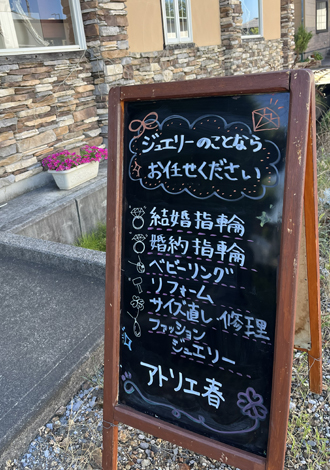 ジュエリーのことなら
お任せください
結婚指輪
婚約指輪
ベビーリング
リフォーム
サイズ直し 修理
ファッション
ジュエリー
アトリエ春